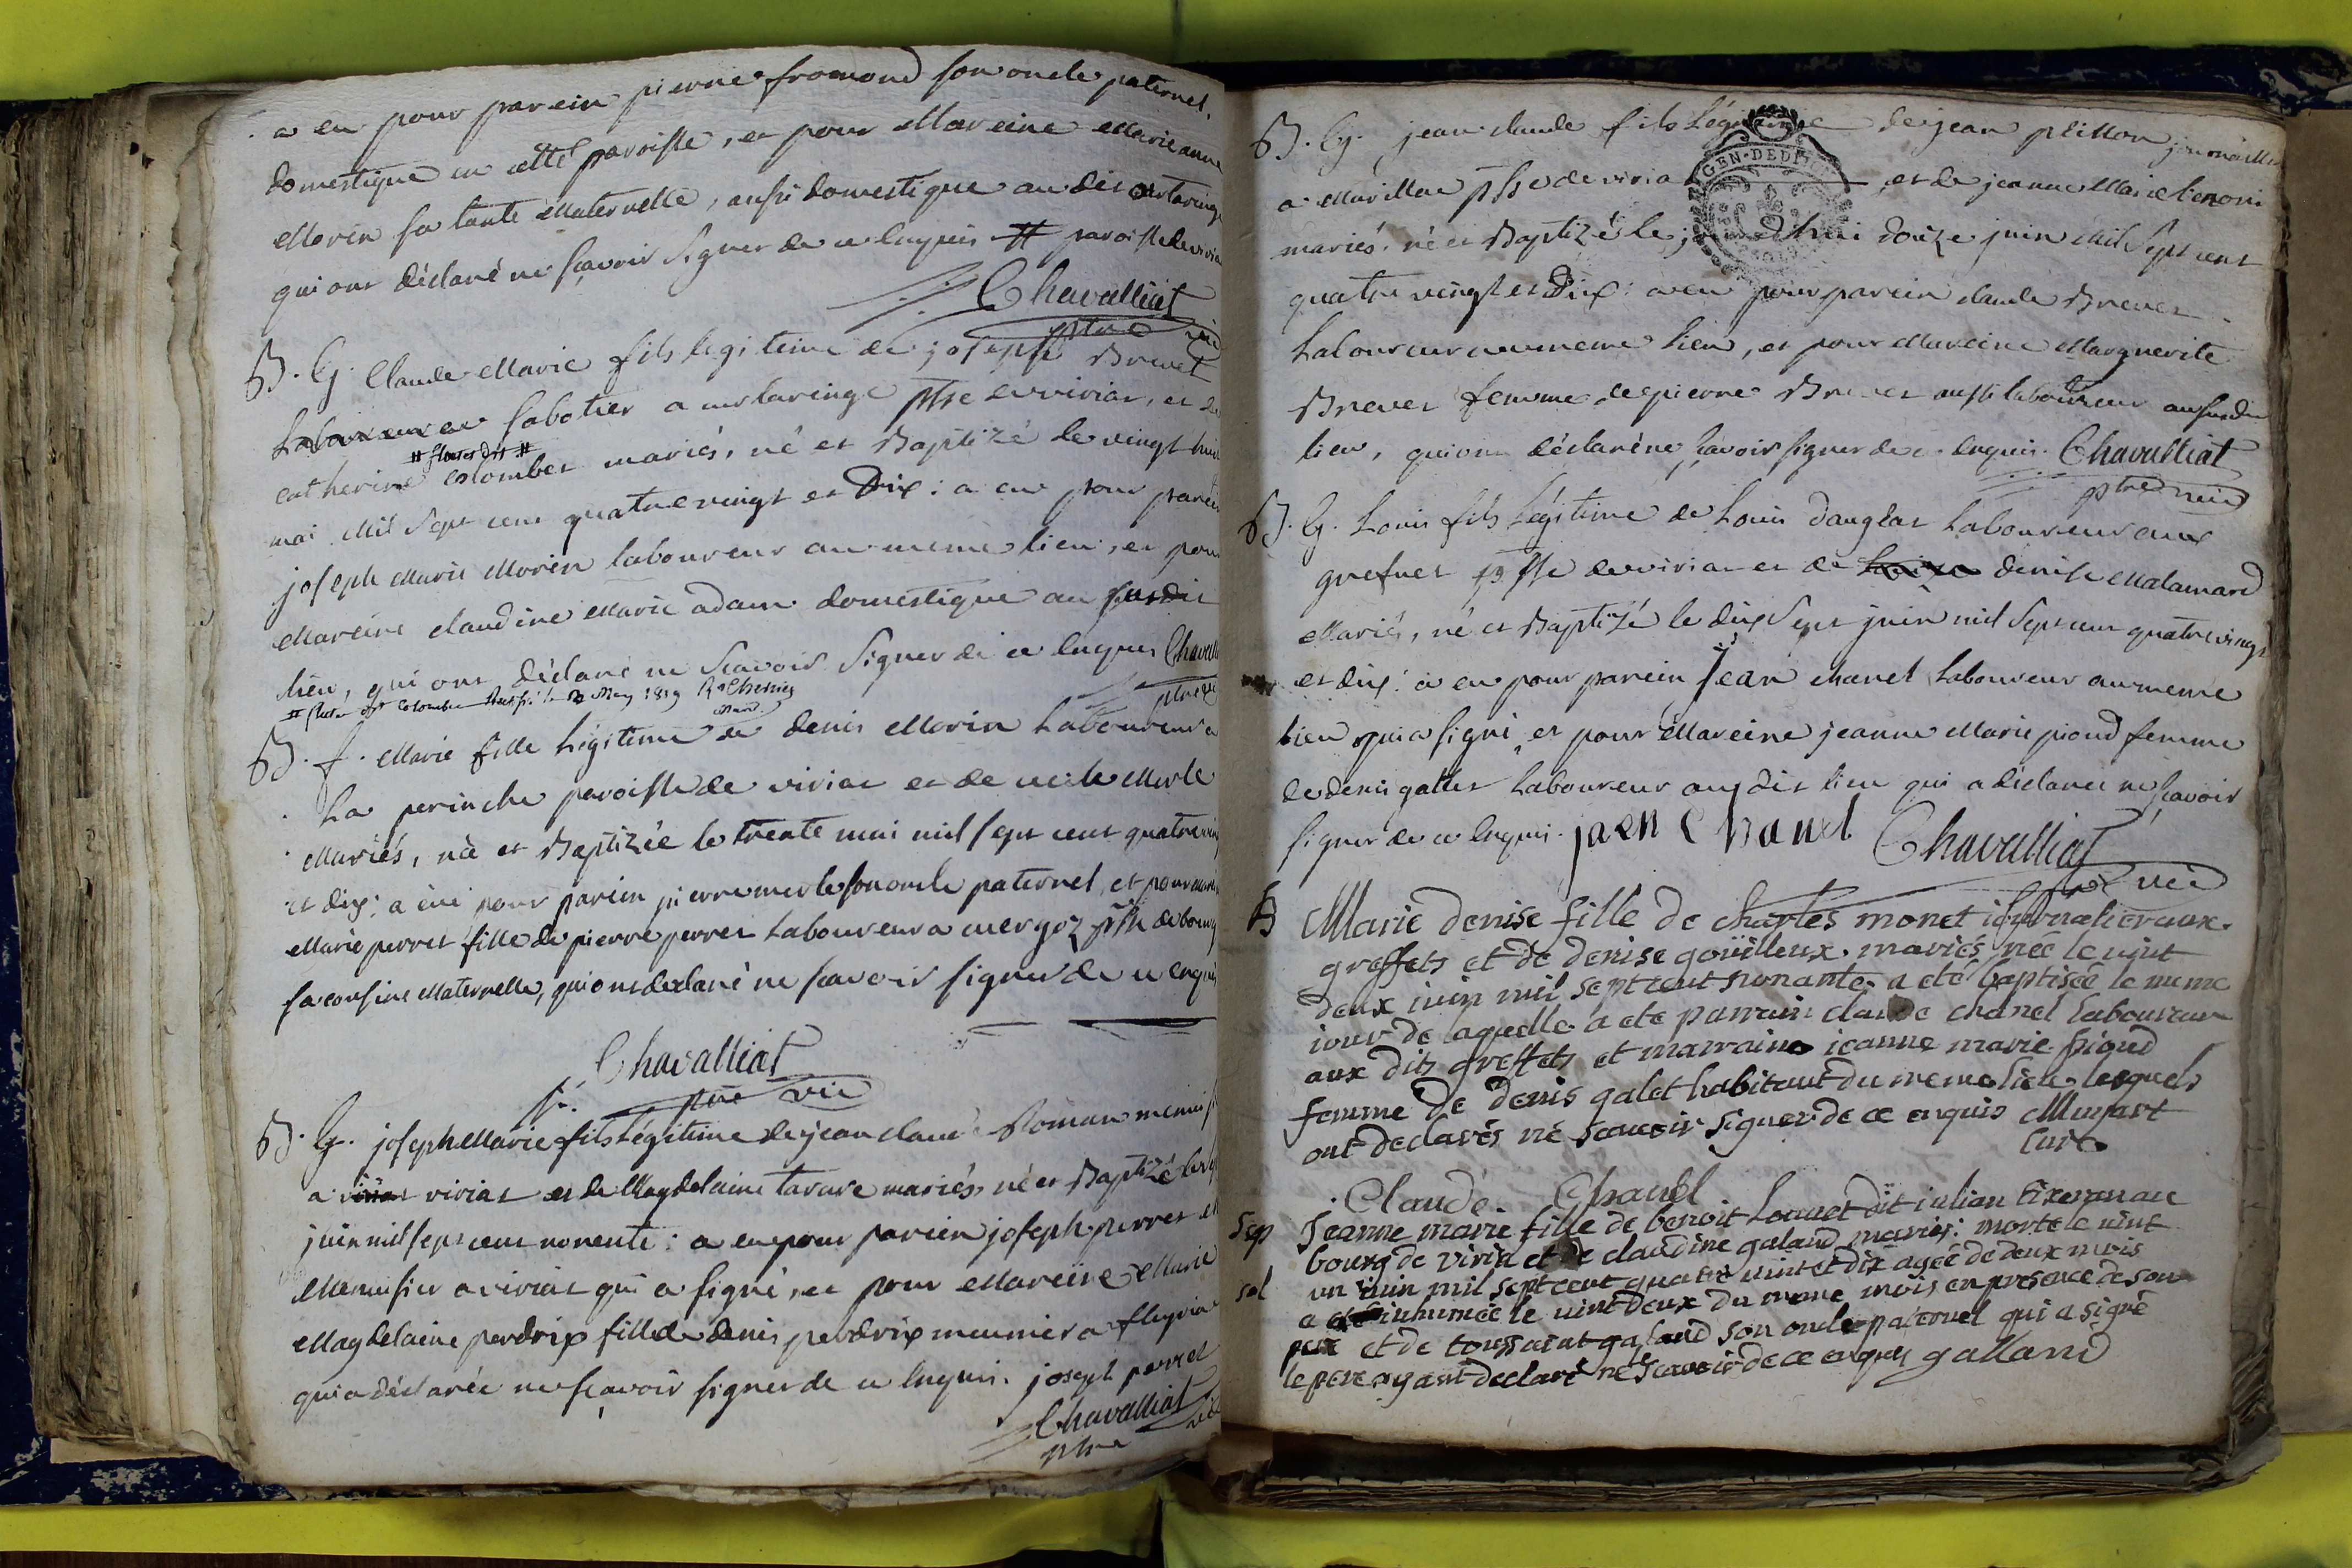 a eu pour parein pierre fromond son oncle paternel,
domestique en cette paroisse, et pour Mareine Marie anne
Morin sa tante Maternelle, aussi domestique au dit
qui ont déclaré ne sçavoir signer de ce enquis # paroisse de viria
Chavalliat
ptre vic
B. G. Claude Marie fils legitime de joseph Brevet
Laboureur et sabotier a montaringe psse de viriat, et de
# #
catherine colombet mariés, né et Baptizé le vingt huit
mai Mil Sept cent quatre vingt et Dix : a eu pour parein
joseph Marie Morin laboureur au meme lieu, et pour
Mareine claudine Marie adam domestique au susdit
lieu, qui ont déclaré ne scavoir signer de ce enquis Chavalliat
# colombe May 1819
B. f. Marie fille légitime de denis Morin Laboureur a
La perinche paroisse de viriat et de cecile Merle
Mariés, née et Baptizée le trente mai mil sept cent quatre vingt
et dix : a eu pour parein pierre merle son oncle paternel, et pour mareine
Marie perret fille de pierre perret Laboureur a cuergoz psse de bourg
sa cousine Maternelle, qui ont declaré ne scavoir signer de ce enquis
Chavalliat
ptre vic
B. G. joseph Marie fils légitime de jean claude Roman menuisier
a viriat viriat et de Magdelaine tavare mariés, né et Baptizé le
juin mil sept cent nonente : a eu pour parein joseph perret
Menuisier a viriat qui a signé, et pour Mareine Marie
Magdelaine perdrix fille de denis perdrix meunier a fleyria
qui a déclarée ne sçavoir signer de ce enquis. joseph perret
Chavalliat
ptre vic
B. G. jean claude fils Légitime de jean pelisson journaillier
a Marillac psse de viriat, et de jeanne Marie
mariés. né et Baptizé le jourd'hui douze juin Mil Sept cent
quatre vingt et Dix : a eu pour parein claude Brevet
Laboureur au meme lieu, et pour Mareine Marguerite
Brevet femme de pierre Brevet aussi laboureur au susdit
lieu, qui ont déclaré ne sçavoir signer de ce enquis. Chavalliat
ptre vic
B. G. Louis fils Légitime de Louis dangléat Laboureur aux
grefuet psse de viriat et de denise Malamard
Mariés, né et Baptizé le dix Sept juin mil Sept cent quatre vingt
et dix : a eu pour parein Jean chanel Laboureur au meme
lieu qui a signé, et pour Mareine jeanne Marie pioud femme
de denis gallet Laboureur au dit lieu qui a déclaré ne sçavoir
signer de ce enquis. jaen Chanel Chavalliat
ptre vic
B Marie denise fille de charles monet iournalier aux
greffets et de denise goüilleux. mariés, née le vint
deux iuin mil sept cent nonante. a été baptisée le meme
iour de laquelle a été parrain claude chanel laboureur
aux dits greffets et marraine ieanne marie pioud
femme de denis galet habitant du meme lieu lesquels
ont declarés ne scavoir signer de ce enquis
Curé
Claude Chanel
Sep Jeanne marie fille de benoit Louuet dit iulian tixeran au
bourg de viria et de claudine galand mariés : morte le vint
un iuin mil sept cent quatre vint et dix agée de deux mois
a été inhumée le vint deux du meme mois en presence de son
pere et de toussaint galand son oncle paternel qui a signé
le pere ayant declaré ne scavoir de ce enquis galland